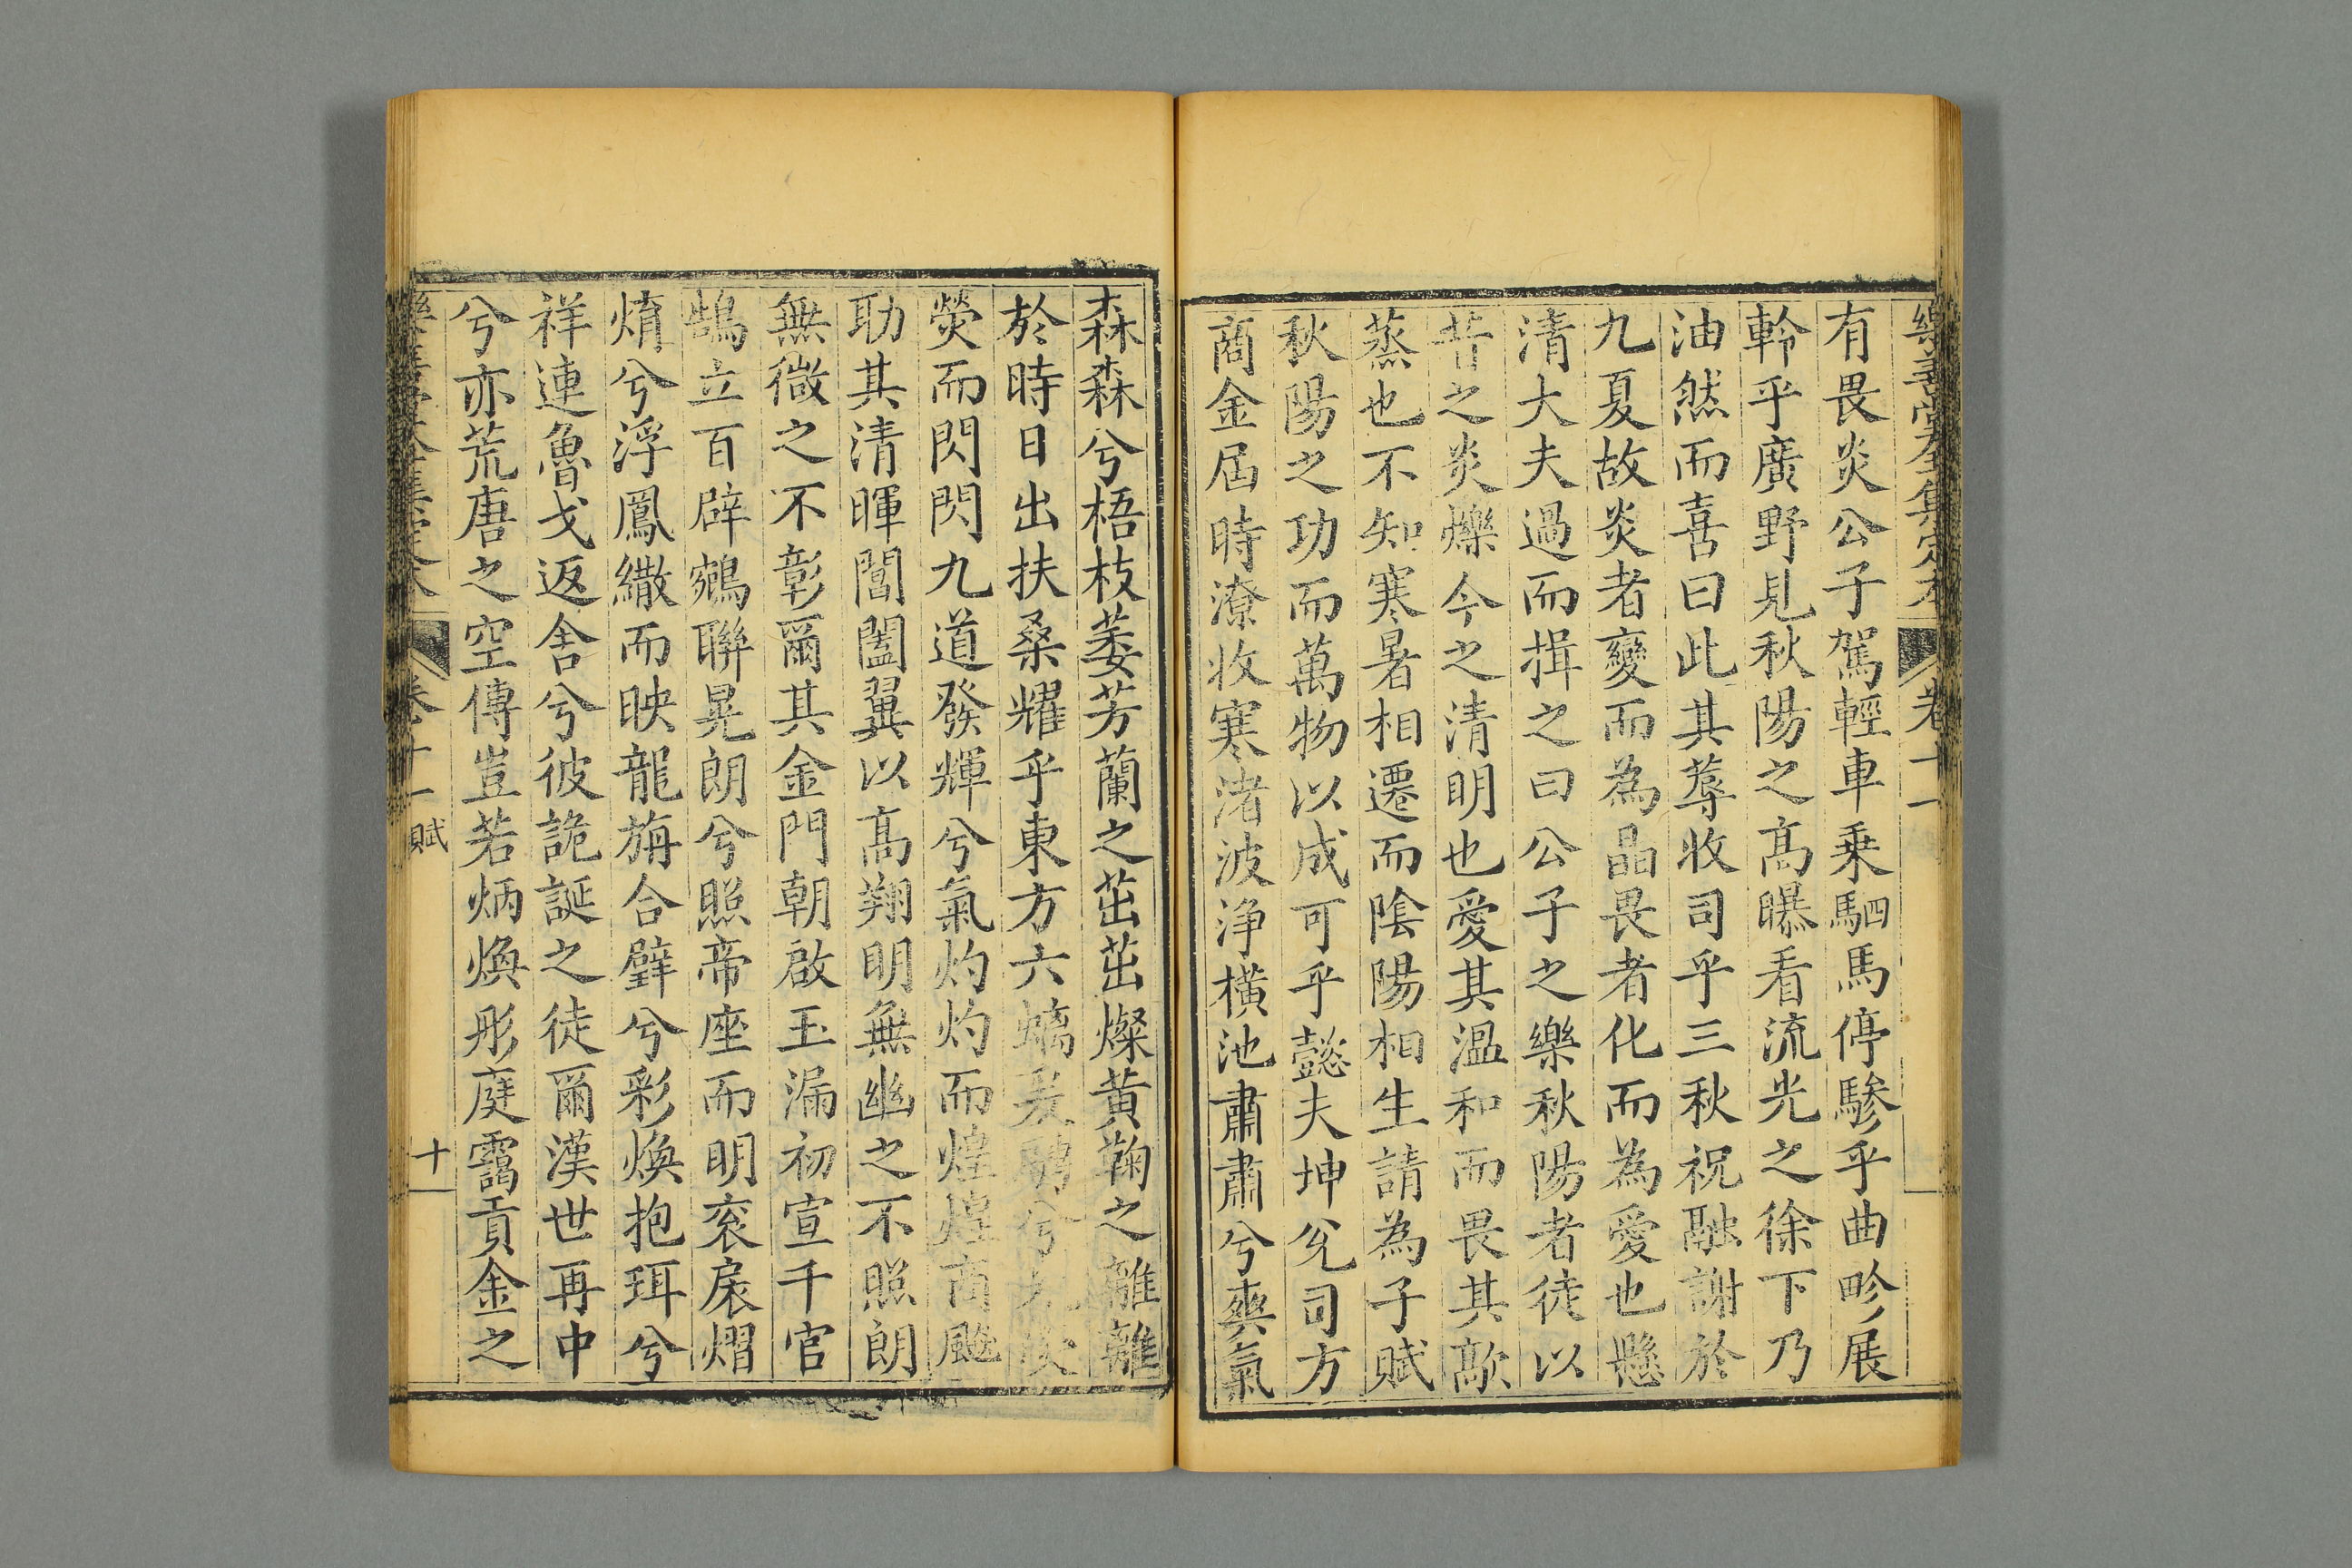 樂善堂全集定本 卷十一
有畏炎公子駕輕車乗駟馬停驂乎曲畛展
軨乎廣野見秋陽之高曝看流光之徐下乃
油然而喜曰此其蓐收司乎三秋祝融謝於
九夏故炎者變而為晶畏者化而為愛也懸
清大夫過而揖之曰公子之樂秋陽者徒以
昔之炎爍今之清明也愛其溫和而畏其歊
蒸也不知寒暑相遷而陰陽相生請為子賦
秋陽之功而萬物以成可乎懿夫坤兊司方
商金屆時潦收寒渚波浄橫池肅肅兮爽氣
森森兮梧枝萎芳蘭之茁茁燦黃鞠之離離
於時日出扶桑耀乎東方六螭
熒而閃閃九道發輝兮氣灼灼而煌煌商飈
助其清暉閶闔翼以高翔明無幽之不照朗
無微之不彰爾其金門朝啟玉漏初宣千官
鵠立百辟鵷聯晃朗兮照帝座而明衮扆熠
焴兮浮鳳繖而映龍旃合璧兮彩煥抱珥兮
祥連魯戈返舍兮彼詭誕之徒爾漢世再中
兮亦荒唐之空傳豈若炳煥彤庭靄貢金之
樂善堂全集定本 卷十一 賦 十